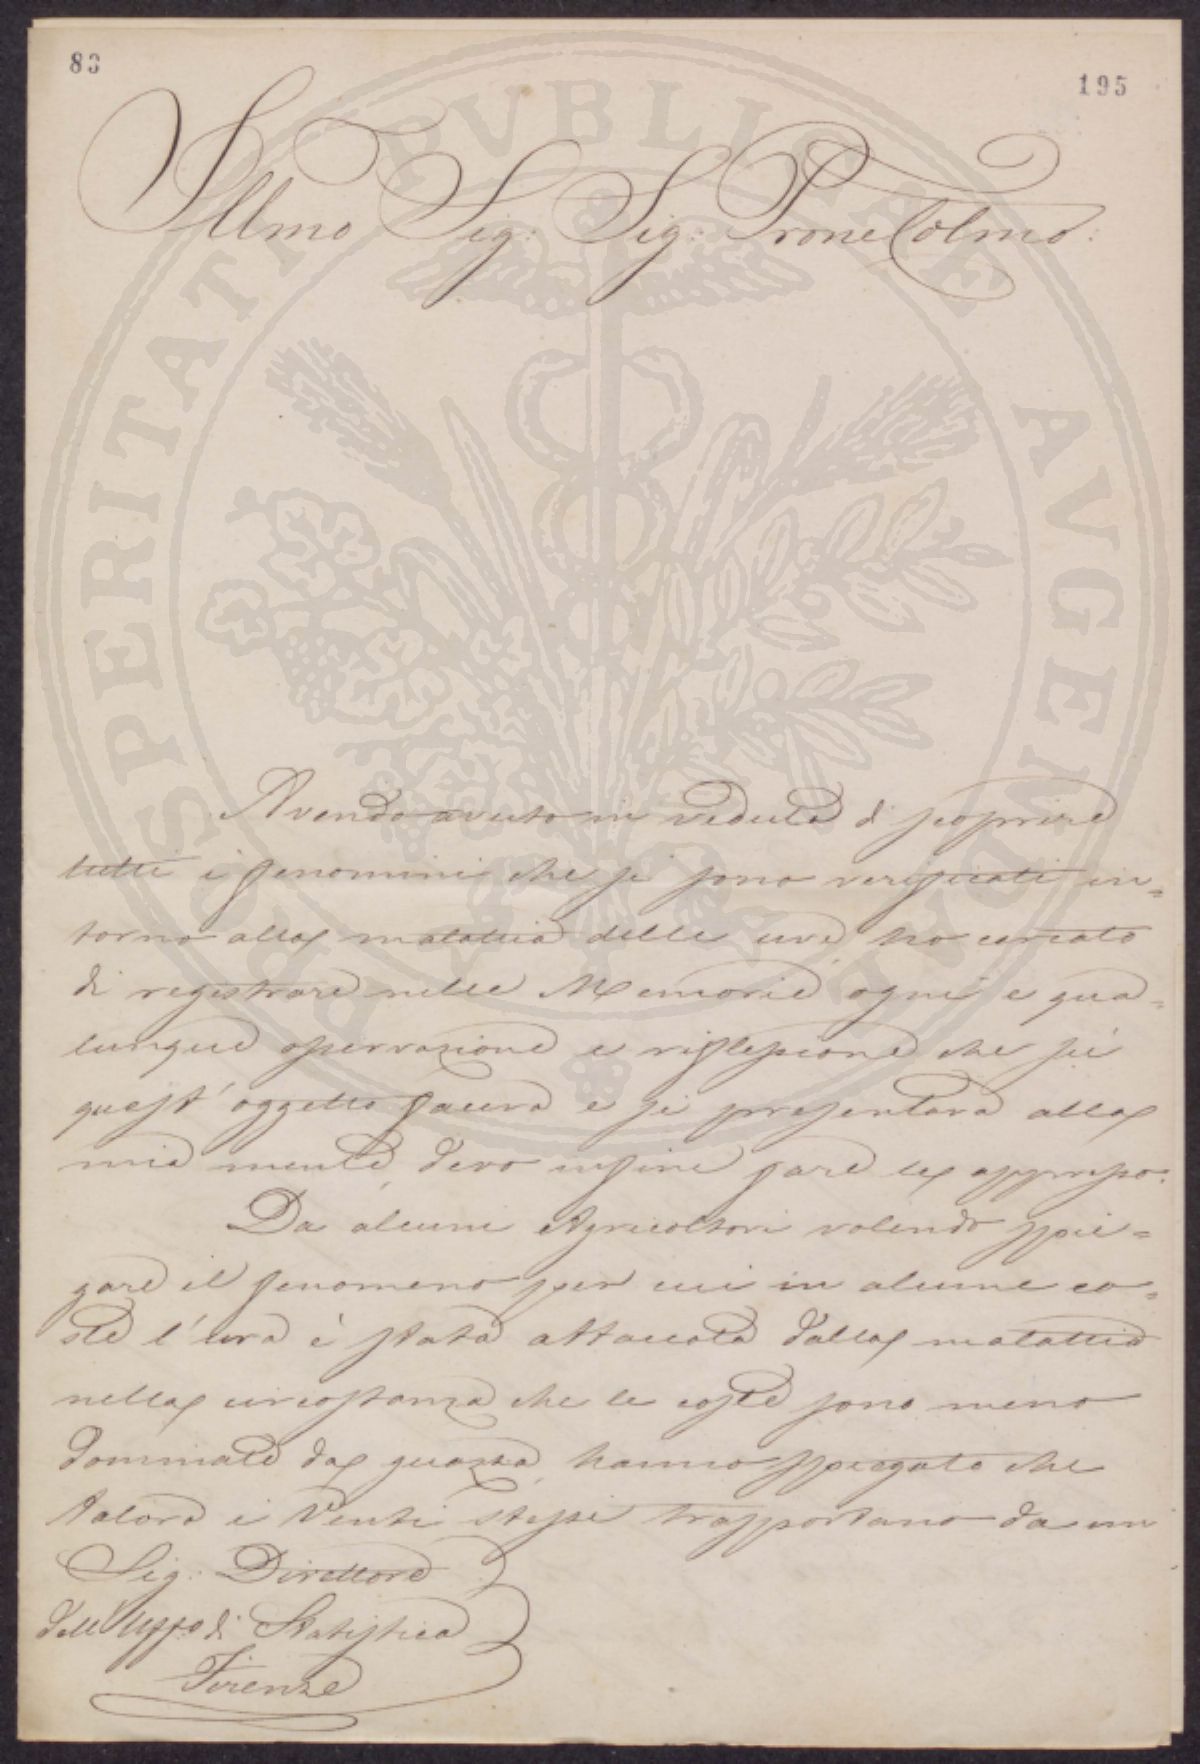 83
195
Illmo Sig: Sig: Prone Colmo:
Avendo avuto in vedute di scoprire
tutti i fenomini che si sono verificati in=
torno alla malattia delle uve, ho cercato
di registrare nelle Memorie ogni e qua=
lunque osservazione e riflessione che sù
quest' oggetto faceva e si presentava alla
mia mente, devo infine fare le appresso:
Da alcuni Agricoltori volendo spie=
gare il fenomeno per cui in alcune co=
ste l'uva è stata attaccata dalla malattia
nella circostanza che le coste sono meno
dominate da guazza, hanno spiegato che
talora i Venti stessi trasportano da un
Sig: Direttore
dell'Uffo di Statistica
Firenze
PVBLICAE AVGENDAE PROSPERITATI